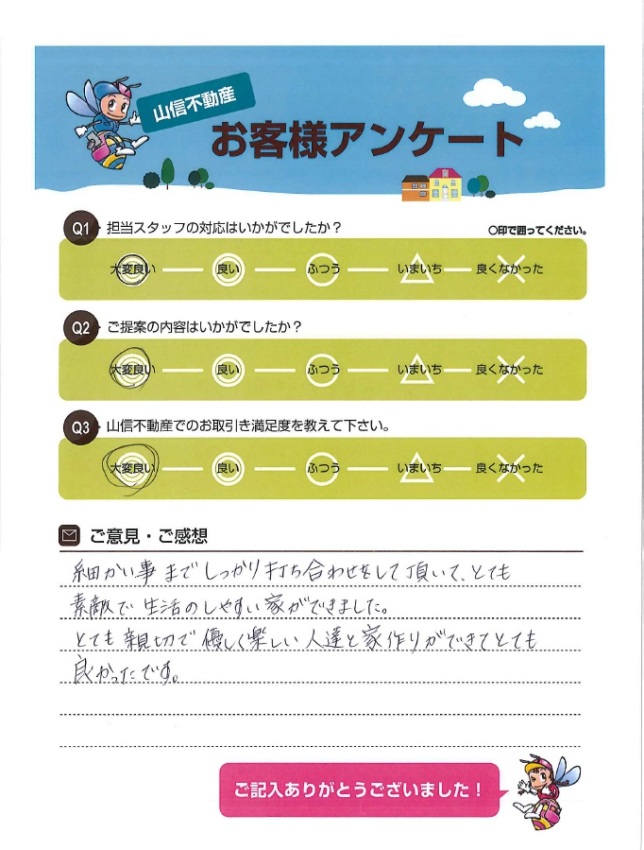 山信不動産
お客様アンケート
Q1 担当スタッフの対応はいかがでしたか？
○印で囲ってください。
大変良い 良い ふつう いまいち 良くなかった
Q2 ご提案の内容はいかがでしたか？
大変良い 良い ふつう いまいち 良くなかった
Q3 山信不動産でのお取引き満足度を教えて下さい。
大変良い 良い ふつう いまいち 良くなかった
ご意見・ご感想
細かい事までしっかり打ち合わせをして頂いて、とても
素敵で生活のしやすい家ができました。
とても親切で優しく楽しい人達と家作りができてとても
良かったです。
ご記入ありがとうございました！